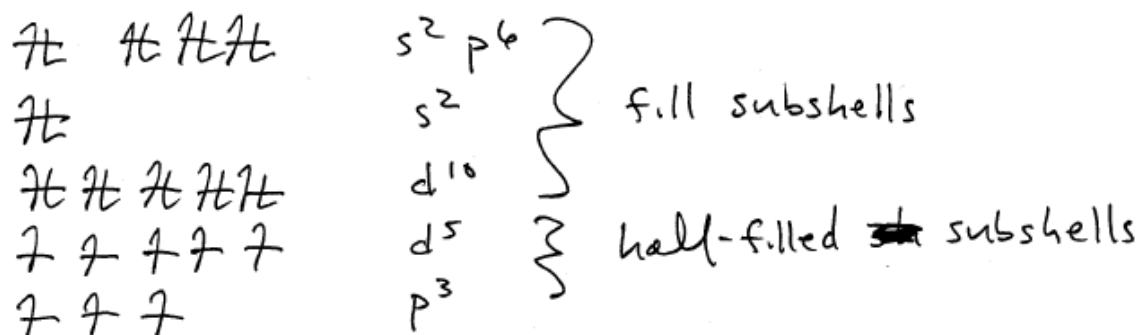 s² p⁶
s²
fill subshells
d¹⁰
d⁵
half-filled subshells
p³